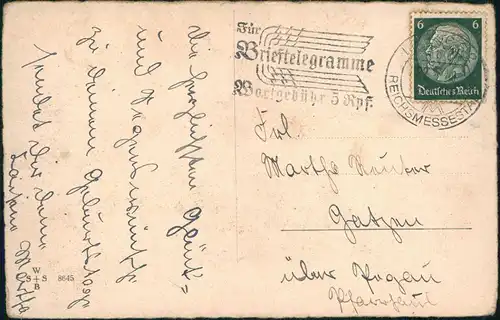 Die herzlichsten Glück-
und Segenswünsche
zu deinem Geburtstage
sendet dir deine
Martha
W
S + S 8645
B
Für
Brieftelegramme
Wortgebühr 5 Rpf.
6 6
Deutsches Reich
REICHSMESSESTA
Frl.
Martha
Gatzen
über Pegau
Pfarrhaus